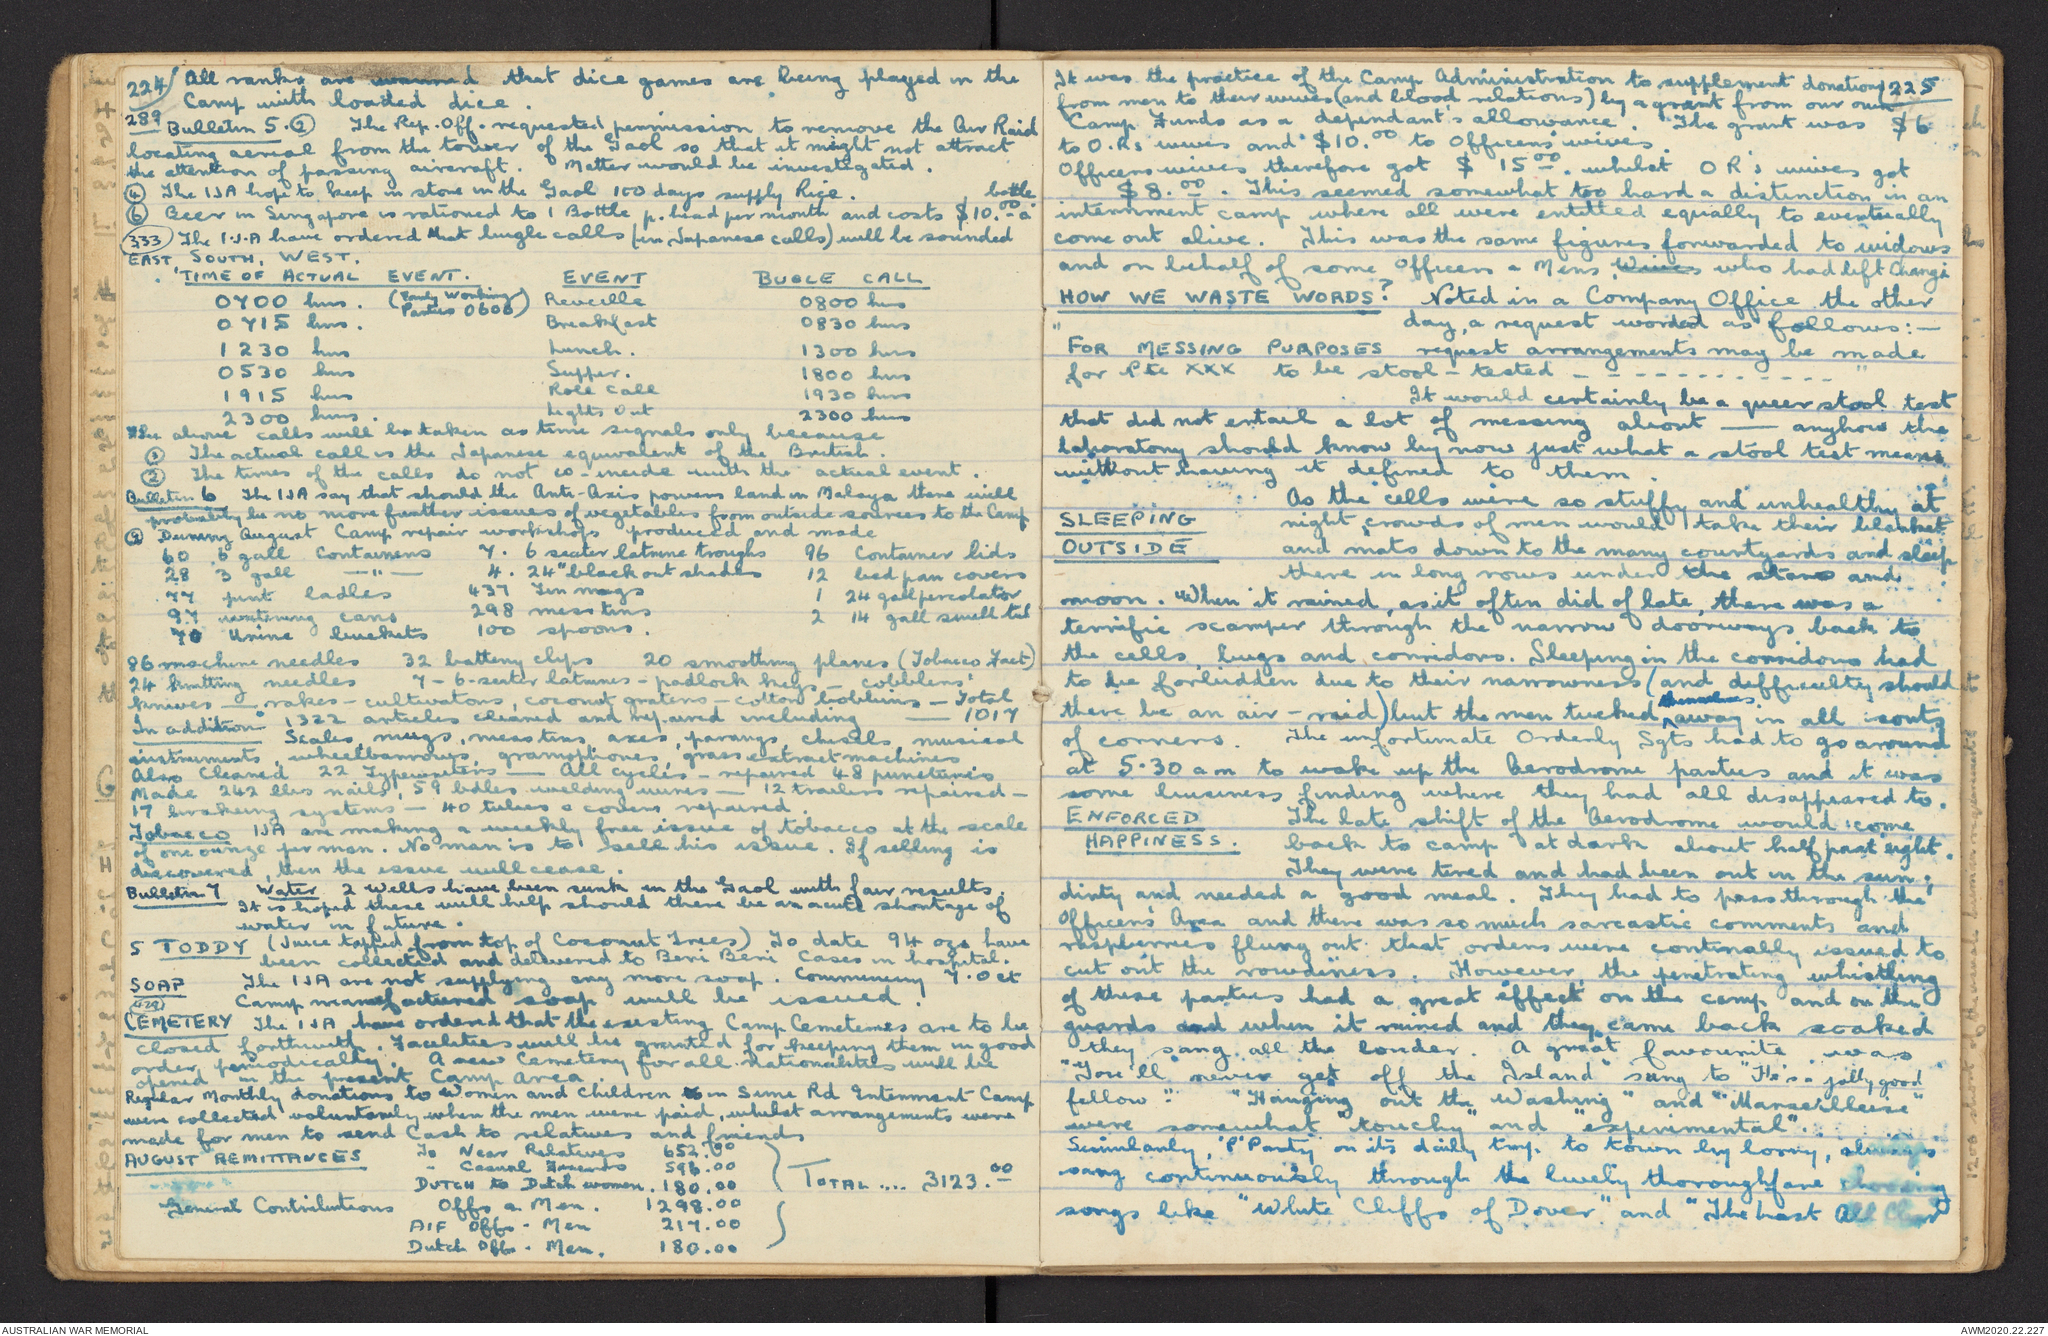 224 All ranks are warned that dice games are being played in the
Camp with loaded dice.
289 Bulletin 5. (2) The Rep. Off. requested permission to remove the Air Raid
locating aerial from the tower of the Gaol so that it might not attract
the attention of passing aircraft. Matter would be investigated.
(4) The IJA hope to keep in store in the Gaol 100 days supply Rice.
(6) Beer in Singapore is rationed to 1 Bottle p. head per month and costs $10.00 a bottle
(333) The I.J.A have ordered that bugle calls (in Japanese calls) will be sounded
EAST, SOUTH, WEST.
TIME OF ACTUAL EVENT. EVENT BUGLE CALL
0700 hrs. (Early Working Parties 0606) Reveille 0800 hrs
0715 hrs. Breakfast 0830 hrs
1230 hrs Lunch. 1300 hrs
0530 hrs Supper. 1800 hrs
1915 hrs Roll Call 1930 hrs
2300 hrs. Lights Out 2300 hrs
The above calls will be taken as time signals only because
(1) The actual call is the Japanese equivalent of the British.
(2) The times of the calls do not co-incide with the actual event.
Bulletin 6 The IJA say that should the Anti-Axis powers land in Malaya there will
probably be no more further issues of vegetables from outside sources to the Camp
(9) During August Camp repair workshops produced and made
60 6 gall containers 7. 6 seater latrine troughs 96 Container lids
28 3 gall —"— 4. 24" black out shades 12 bed pan covers
77 pint ladles 437 Tin mugs 1 24 gall percolator
97 watering cans 298 mess tins 2 14 gall swill tub
70 Urine buckets 100 spoons.
86 machine needles 32 battery clips 20 smoothing planes (Tobacco Fact)
24 knitting needles 7-6-seater latrines - padlock keys - cobblers'
knives — rakes - cultivators, coconut graters - cotton bobbins - Total
In addition 1322 articles cleaned and repaired including — 1017
Scales, mugs, mess tins, axes, parangs, chisels, musical
instruments, wheelbarrows, gramophones, grass extract machines
Also Cleaned 22 Typewriters — All cycles - repaired 48 punctures
Made 242 lbs nails, 59 bdles welding wires — 12 trailers repaired -
17 braking systems - 40 tubes & covers repaired.
Tobacco IJA are making a weekly free issue of tobacco at the scale
of one ounze per man. No man is to sell his issue. If selling is
discovered, then the issue will cease.
Bulletin 7 Water 2 wells have been sunk in the Gaol with fair results.
It is hoped these will help should there be an acute shortage of
water in future.
5 TODDY (Juice tapped from top of Coconut Trees) To date 94 ozs have
been collected and delivered to Beri Beri Cases in hospital.
SOAP The IJA are not supplying any more soap. Commencing 7. Oct
Camp manufactured soap will be issued.
(429)
CEMETERY The IJA have ordered that the existing Camp Cemeteries are to be
closed forthwith. Facilities will be granted for keeping them in good
order periodically. A new Cemetery for all nationalities will be
opened in the present Camp Area
Regular Monthly donations to Women and Children in Sime Rd Internment Camp
were collected voluntarily when the men were paid, whilst arrangements were
made for men to send Cash to relatives and friends
AUGUST REMITTANCES To Near Relatives 652.00
" Casual Friends 596.00
Dutch to Dutch women. 180.00 TOTAL .... 3123.00
General Contributions Offs & Men. 1298.00
AIF Offs - Men 217.00
Dutch Offs - Men. 180.00
225
It was the practice of the Camp Administration to supplement donations
from men to their wives (and blood relations) by a grant from our own
Camp Funds as a dependant's allowance. The grant was $6
to O.Rs wives and $10.00 to Officers' wives.
Officers wives therefore got $15.00. whilst OR's wives got
$8.00. This seemed somewhat too hard a distinction in an
internment camp where all were entitled equally to eventually
come out alive. This was the same figures forwarded to widows
and on behalf of some Officers & Mens Wives who had left Changi
HOW WE WASTE WORDS? Noted in a Company Office the other
day, a request worded as follows:-
"FOR MESSING PURPOSES request arrangements may be made
for Pte XXX to be stool-tested - - - - - - - - - - - - "
It would certainly be a queer stool test
that did not entail a lot of messing about — anyhow the
laboratory should know by now just what a stool test means
without having it defined to them.
SLEEPING OUTSIDE As the cells were so stuffy and unhealthy at
night, crowds of men would take their blanket
and mats down to the many courtyards and sleep
there in long rows under the stars and
moon. When it rained, as it often did of late, there was a
terrific scamper through the narrow doorways back to
the cells, bugs and corridors. Sleeping in the corridors had
to be forbidden due to their narrowness (and difficulty should
there be an air-raid) but the men tucked themselves away in all sorts
of corners. The unfortunate Orderly Sgts had to go around
at 5.30 am to wake up the Aerodrome parties and it was
some business finding where they had all disappeared to.
ENFORCED HAPPINESS. The late shift of the Aerodrome would come
back to camp at dark about half past eight.
They were tired and had been out in the sun;
dirty and needed a good meal. They had to pass through the
Officers' Area and there was so much sarcastic comments and
raspberries flung out that orders were continally issued to
cut out the rowdiness. However, the penetrating whistling
of these parties had a great effect on the camp and on the
guards and when it rained and they came back soaked
they sang all the louder. A great favourite was
"You'll never get off the Island" sung to "He's a jolly good
fellow". "Hanging out the Washing" and "Marseilleise"
were somewhat "touchy" and "experimental".
Similarly, 'P' Party on its daily trip to town by lorry, always
sang continuously through the lively thoroughfare choosing
songs like "White Cliffs of Dover" and "The Last All Clear"
AUSTRALIAN WAR MEMORIAL
AWM2020.22.227